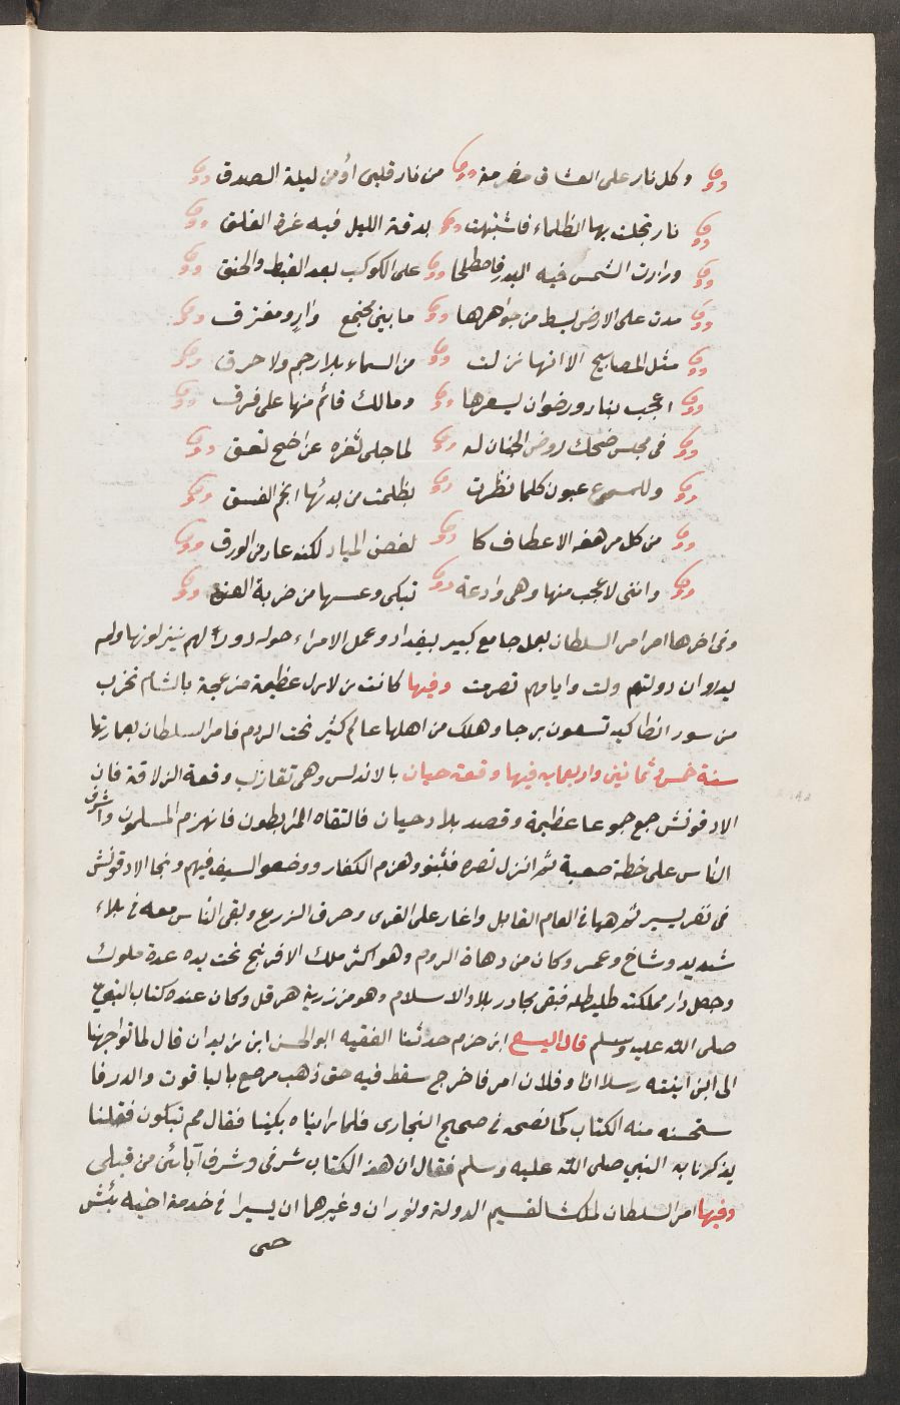 وكل نار على العشاق مضرمة من نار قلبى أو من ليلة الصدق
نار تجلت بها الظلماء فاشبهت بدفة الليل فيه غرة الفلق
وزارت الشمس فيه البدر فاصطلحا على الكوكب بعد الغيظ والحنق
مدت على الارض بسط من جواهرها ما بين مجتمع وارٍ ومفترق
مثل المصابيح الا انها نزلت من السماء بلا رجم ولا حرق
اعجب بنار ورضوان يسعرها ومالك قائم منها على فرق
فى مجلس ضحك روض الجنان له لما جلى ثغره عن اضح نعق
وللسموع عيون كلما نظرت بظلمت من بدئها انجم الغسق
من كل مرهفه الاعطاف كا لغصن المياد لكنه عار من الورق
وانى لاعجب منها وهى وادعة تبكى وعيسها من ضربة العنق
وفى اخرها امر السلطان بعمل جامع كبير ببغداد وعمل الامراء حوله دورا لهم ينزلونها ولم
يدروا ان دولتهم ولت وايامهم تصرمت وفيها كانت زلازل عظيمة مزعجة بالشام تخرب
من سور انطاكيه تسعون برجا وهلك من اهلها عالم كثير تحت الردم فامر السلطان بعمارتها
سنة خمس وثمانين واربعمايه فيها وقعة حيان بالاندلس وهى تقارب وقعة الزلاقة فان
الادفونش جمع جموعا عظيمة وقصد بلاد حيان فالتقاه المرابطون فانهزم المسلمون واشرف
الناس على خطة صعبة ثم انزل نصره فثبتو وهزم الكفار ووضعو السيف فيهم ونجا الادفونش
فى نفر يسير ثم هبا فى العام القابل واغار على القرى وحرق الزرع وبقى الناس معه فى بلاء
شديد وشاخ وعمر وكان من دهاة الروم وهو اكثر ملك الافرنج تحت يده عدة ملوك
وجعل دار مملكته طليطله فبقى يجاور بلاد الاسلام وهو من زرية هرقل وكان عنده كتاب النبى
صلى الله عليه وسلم قال اليسع ابن حزم حدثنا الفقيه ابو الحسن ابن زيدان قال لما تواجهنا
الى ابن ابنته رسلا انا وفلان امر فاخرج سفط فيه حق ذهب مرصع بالياقوت والدر فا
ستحسنه منه الكتاب كما نصحه فى صحيح البخارى فلما رايناه بكينا فقال مم تبكون فقلنا
يذكرنا به النبي صلى الله عليه وسلم فقال ان هذ الكتاب شرفى وشرف آبائى من قبلى
وفيها امر السلطان لملكشا لقسيم الدولة ولبوران وغيرهما ان يسيرا فى خدمة اخيه تتش
حتى